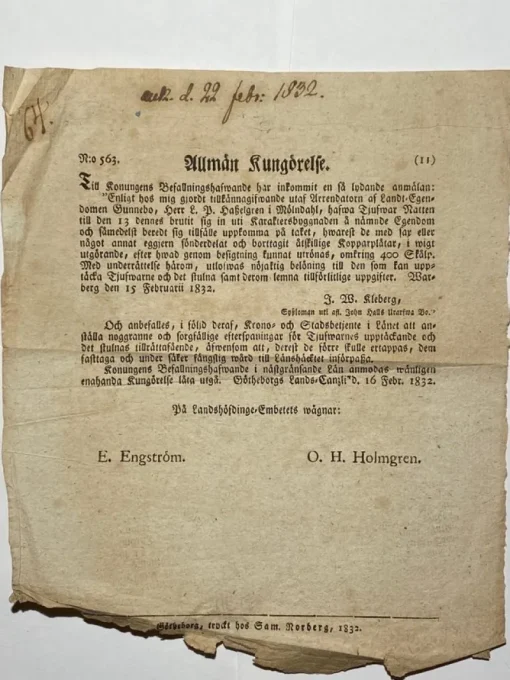 64.
ank. d. 22 febr: 1832.
N:o 563.
Allmän Kungörelse.
(11)
Till Konungens Befallningshafwande har inkommit en så lydande anmälan:
"Enligt hos mig gjordt tillkännagifwande utaf Arrendatorn af Landt-Egen-
domen Gunnebo, Herr L. P. Haßelgren i Mölndahl, hafwa Tjufwar Natten
till den 13 dennes brutit sig in uti Karaktersbyggnaden å nämnde Egendom
och såmedelst beredt sig tillfälle uppkomma på taket, hwarest de med såg eller
något annat eggjern sönderdelat och borttagit åtskillige Kopparplåtar, i wigt
utgörande, efter hwad genom besigtning kunnat utrönas, omkring 400 Skålp.
Med underrättelse härom, utlofwas nöjaktig belöning till den som kan upp-
täcka Tjufwarne och det stulna samt derom lemna tillförlitlige uppgifter. War-
berg den 15 Februarii 1832.
J. W. Kleberg,
Syßloman uti afl. John Halls Urarfwa Bo."
Och anbefalles, i följd deraf, Krono- och Stadsbetjente i Länet att an-
ställa noggranne och sorgfällige efterspaningar för Tjufwarnes upptäckande och
det stulnas tillrättafående, äfwensom att, derest de förre skulle ertappas, dem
fasttaga och under säker fångstig wård till Länshäcktet införpaßa.
Konungens Befallningshafwande i nästgränsande Län anmodas wänligen
enahanda Kungörelse låta utgå. Götheborgs Lands-Canzli d. 16 Febr. 1832.
På Landshöfdinge-Embetets wägnar:
E. Engström.
O. H. Holmgren.
Götheborg, tryckt hos Sam. Norberg, 1832.